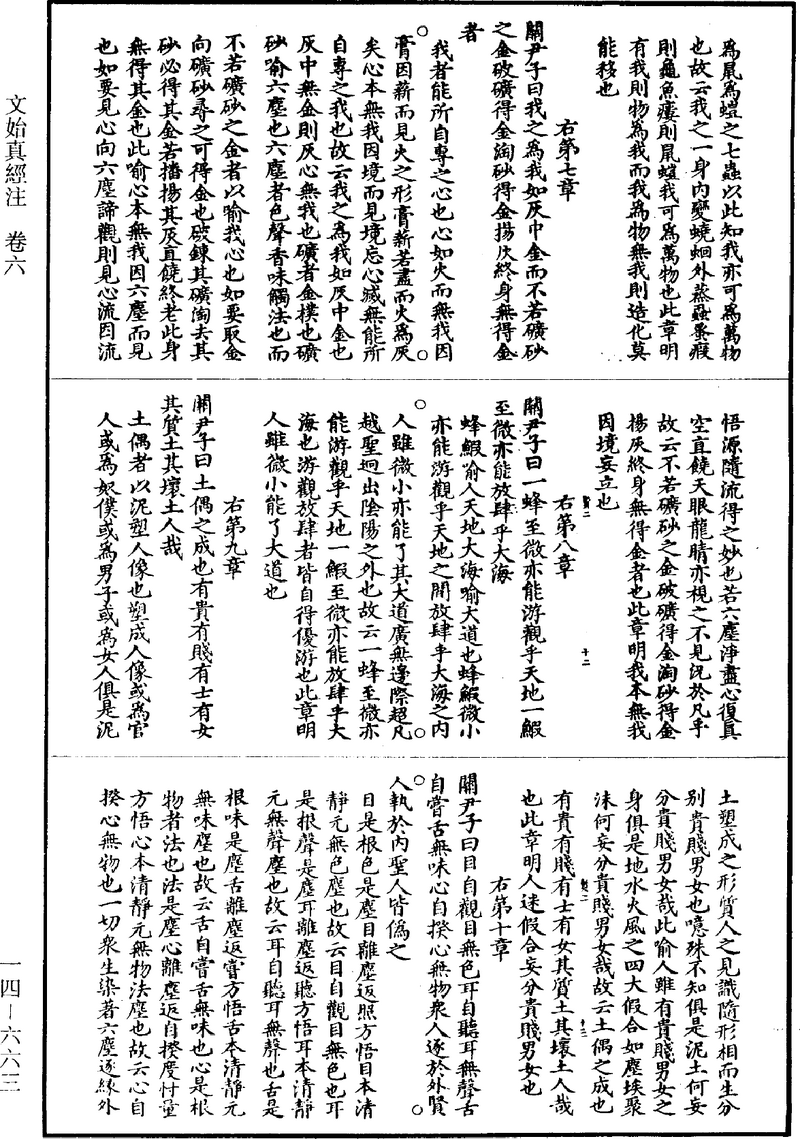 文始真經注　卷六
一四—六六三
為鼠為螘之七蟲以此知我亦可為萬物
也故云我之一身內變蟯蛔外蒸蟲蚤瘕
則龜魚瘻則鼠螘我可為萬物也此章明
有我則物為我而我為物無我則造化莫
能移也
右第七章
關尹子曰我之為我如灰中金而不若礦砂
之金破礦得金淘砂得金揚灰終身無得金
者
我者能所自專之心也心如火而無我因
膏因薪而見火之形膏薪若盡而火為灰
矣心本無我因境而見境忘心滅無能所
自專之我也故云我之為我如灰中金也
灰中無金則灰心無我也礦者金樸也礦
砂喻六塵也六塵者色聲香味觸法也而
不若礦砂之金者以喻我心也如要取金
向礦砂尋之可得金也破鍊其礦淘去其
砂必得其金若播揚其灰直饒終老此身
無得其金也此喻心本無我因六塵而見
也如要見心向六塵諦觀則見心流因流
悟源隨流得之妙也若六塵淨盡心復真
空直饒天眼龍睛亦視之不見況於凡乎
故云不若礦砂之金破礦得金淘砂得金
揚灰終身無得金者也此章明我本無我
因境妄立也
右第八章
十二
關尹子曰一蜂至微亦能游觀乎天地一鰕
至微亦能放肆乎大海
蜂鰕喻人天地大海喻大道也蜂鰕微小
亦能游觀乎天地之間放肆乎大海之內
人雖微小亦能了其大道廣無邊際超凡
越聖迥出陰陽之外也故云一蜂至微亦
能游觀乎天地一鰕至微亦能放肆乎大
海也游觀放肆者皆自得優游也此章明
人雖微小能了大道也
右第九章
關尹子曰土偶之成也有貴有賤有士有女
其質土其壞土人哉
土偶者以泥塑人像也塑成人像或為官
人或為奴僕或為男子或為女人俱是泥
土塑成之形質人之見識隨形相而生分
別貴賤男女也噫殊不知俱是泥土何妄
分貴賤男女哉此喻人雖有貴賤男女之
身俱是地水火風之四大假合如塵埃聚
沫何妄分貴賤男女哉故云土偶之成也
有貴有賤有士有女其質土其壞土人哉
也此章明人迷假合妄分貴賤男女也
右第十章
關尹子曰目自觀目無色耳自聽耳無聲舌
自嘗舌無味心自揆心無物衆人逐於外賢
人執於內聖人皆偽之
目是根色是塵目離塵返照方悟目本清
靜元無色塵也故云目自觀目無色也耳
是根聲是塵耳離塵返聽方悟耳本清靜
元無聲塵也故云耳自聽耳無聲也舌是
根味是塵舌離塵返嘗方悟舌本清靜元
無味塵也故云舌自嘗舌無味也心是根
物者法也法是塵心離塵返自揆度忖量
方悟心本清靜元無物法塵也故云心自
揆心無物也一切衆生染著六塵逐緣外